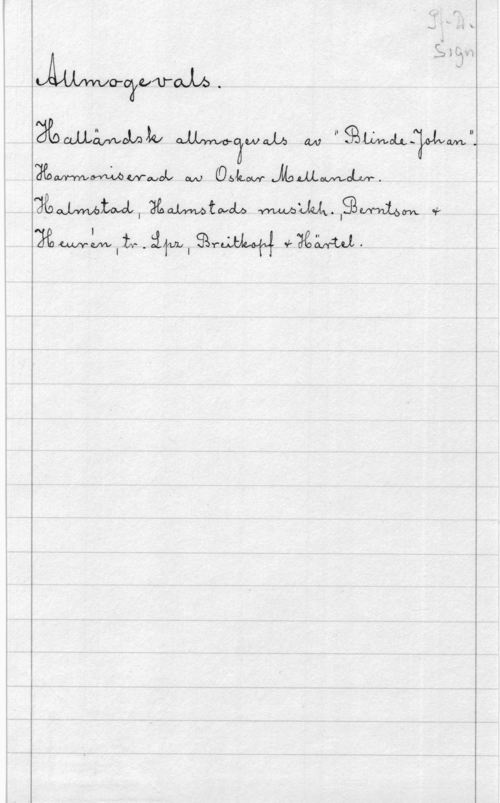 Pf-D.
Sign
Allmogevals.
Halländsk allmogevals av "Blinde-Johan".
Harmoniserad av Oskar Mellander.
Halmstad, Halmstads musikh., Berntson &
Heurén, tr. Lpz, Breitkopf & Härtel.